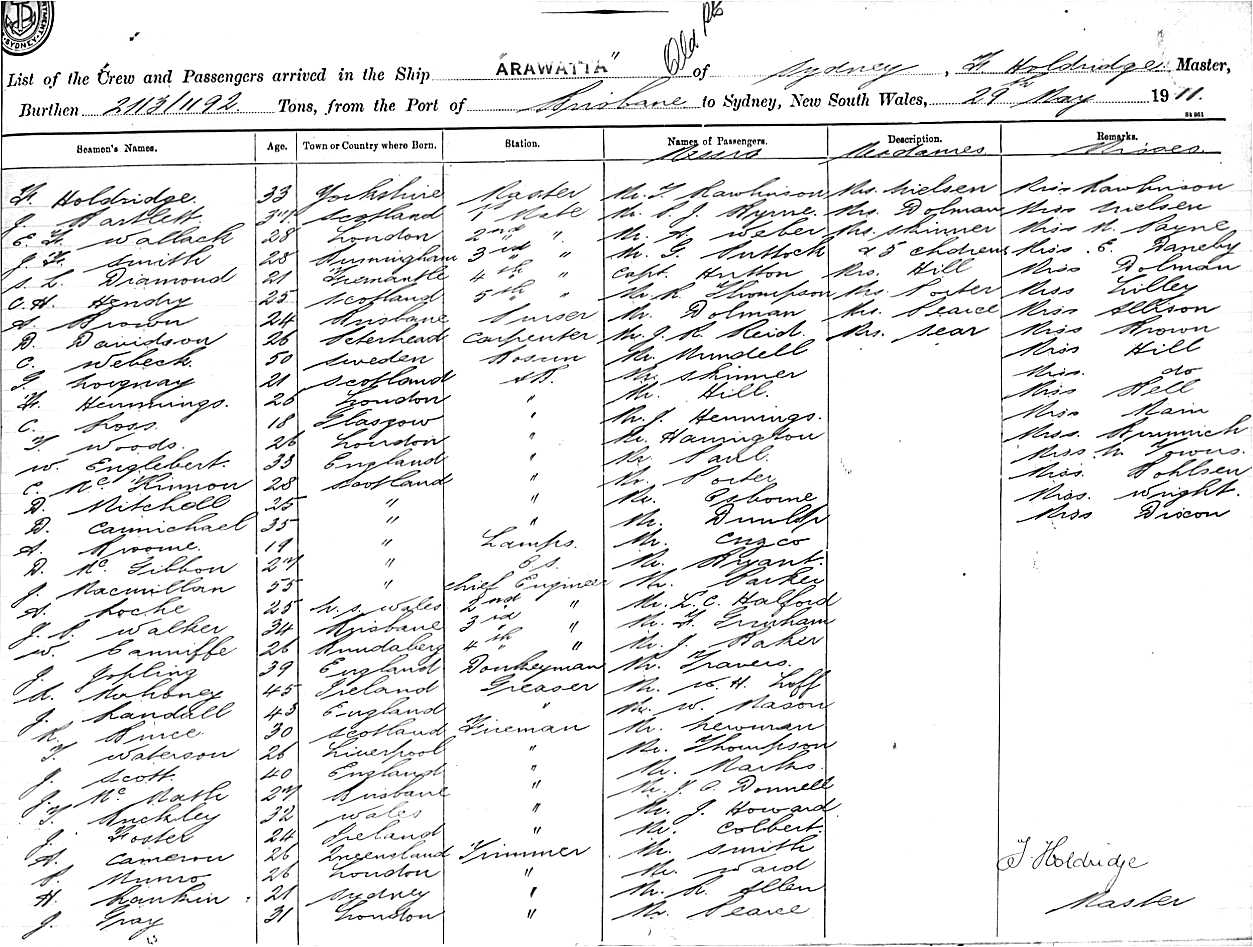 SYDNEY
Old
List of the Crew and Passengers arrived in the Ship "ARAWATTA" of Sydney, F Holdridge Master,
Burthen 2113/1192 Tons, from the Port of Brisbane to Sydney, New South Wales, 29th May 1911.
Seamen's Names. Age. Town or Country where Born. Station. Names of Passengers. Description. Remarks.
Messrs Mesdames Misses
Holdridge. 33 Yorkshire Master Mr. F Rawlinson Mrs. Nielsen Miss Rawlinson
J. Bartlett 37 Scotland 1 Mate Mr. P J Byrne Mrs. Dolman Miss Nielsen
Wallack 28 London 2nd " Mr. A Weber Mrs. Skinner Miss Payne
J. Smith 28 Birmingham 3rd " Mr. G. Puttock & 5 children Miss E. Daneby
S. L. Diamond 21 Fremantle 4th " Capt. Hutton Mrs. Hill Miss Dolman
C. H. Hendry 25 Scotland 5th " Mr. R Thompson Mrs Porter Miss Lilley
A. Brown 24 Brisbane Purser Mr. Dolman Mrs. Pearce Miss Allison
D. Davidson 26 Peterhead Carpenter Mr. J. R. Reid. Mrs. Sear Miss Brown
C. Webeck. 50 Sweden Bosun Mr. Mundell Miss Hill
G. 21 Scotland AB. Mr. Skinner Miss. do
Hennings. 26 London " Mr. Hill. Miss Bell
C. Loss 18 Glasgow " Mr. J. Hennings. Miss Main
T. Woods. 26 London " Mr Harrington Miss.
W. Englebert. 33 England " Mr Paul. Miss Towns.
C. McKinnon 28 Scotland " Mr Porter Miss Pohlsen
D. Mitchell 25 " " Mr. Osborne Miss. Wright.
D. Carmichael 35 " " Mr. Dunlop Miss Dixon
A. Broome. 19 " Lamps. Mr.
D. McGibbon 27 " Mr. Bryant.
J. Macmillan 55 " Chief Engineer Mr. Parker
A. Locke 25 N. S. Wales 2nd " Mr. L. C. Halford
J. P. Walker 34 Brisbane 3rd " Mr. Grenham
W. Canniffe 26 Bundaberg 4th " Mr. J. Baker
J. Jopling 39 England Donkeyman Mr. Travers.
Mahoney 45 Ireland Greaser Mr. W. H. Loff
J. Randall 43 England " Mr. W. Mason
R. Bruce 30 Scotland Fireman Mr. Newman
T. Waterson 26 Liverpool " Mr. Thompson
J. Scott 40 England " Mr. Marks.
J. McMath 27 Brisbane " Mr. J. O. Donnell
T. Buckley 32 Wales " Mr. J. Howard
J. Foster 24 Ireland " Mr. Colbert
A. Cameron 26 Queensland Trimmer Mr. Smith
P. Munro 26 London " Mr. Ward
H. Rankin 21 Sydney " Mr. R. Allen
J. Gray 31 London " Mr. Pearce
F Holdridge
Master